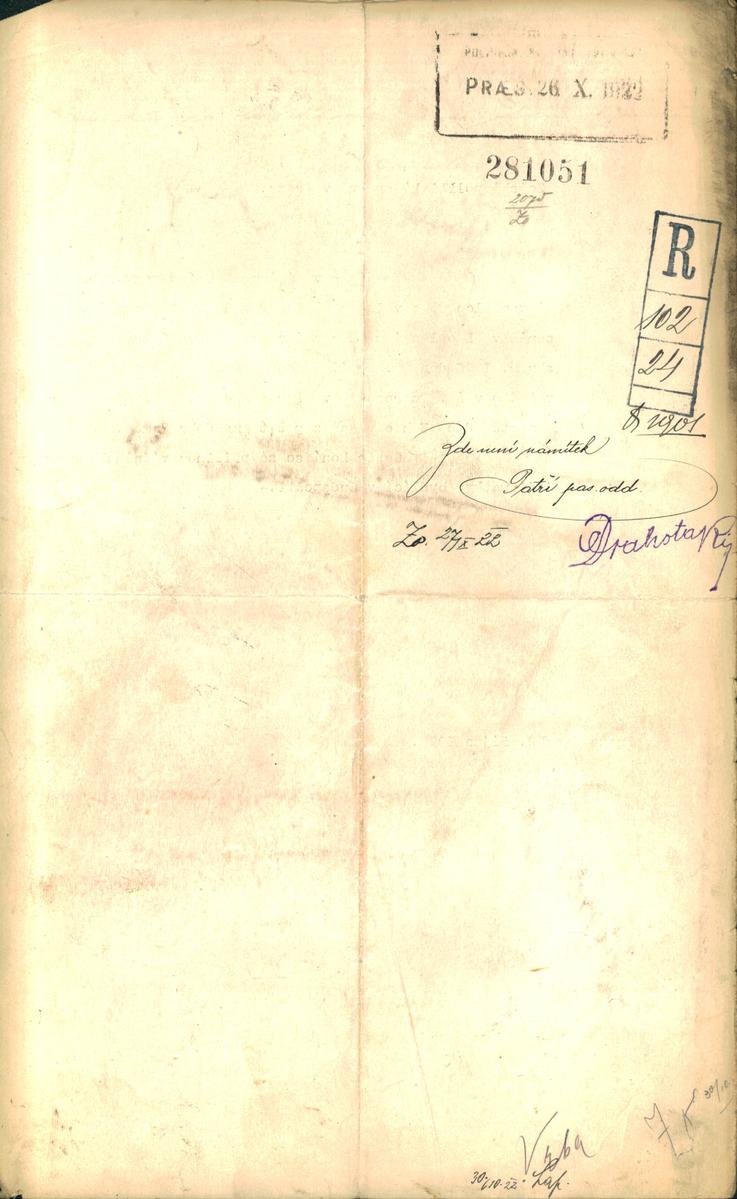 PRÆS. 26 X. 1922
281051
2075
Zo
R
102
24
1901
Zde není námitek
Patří pas. odd.
Zo. 27/X 22
Drahota
30/10
Vyba
30/10.22. Lap.